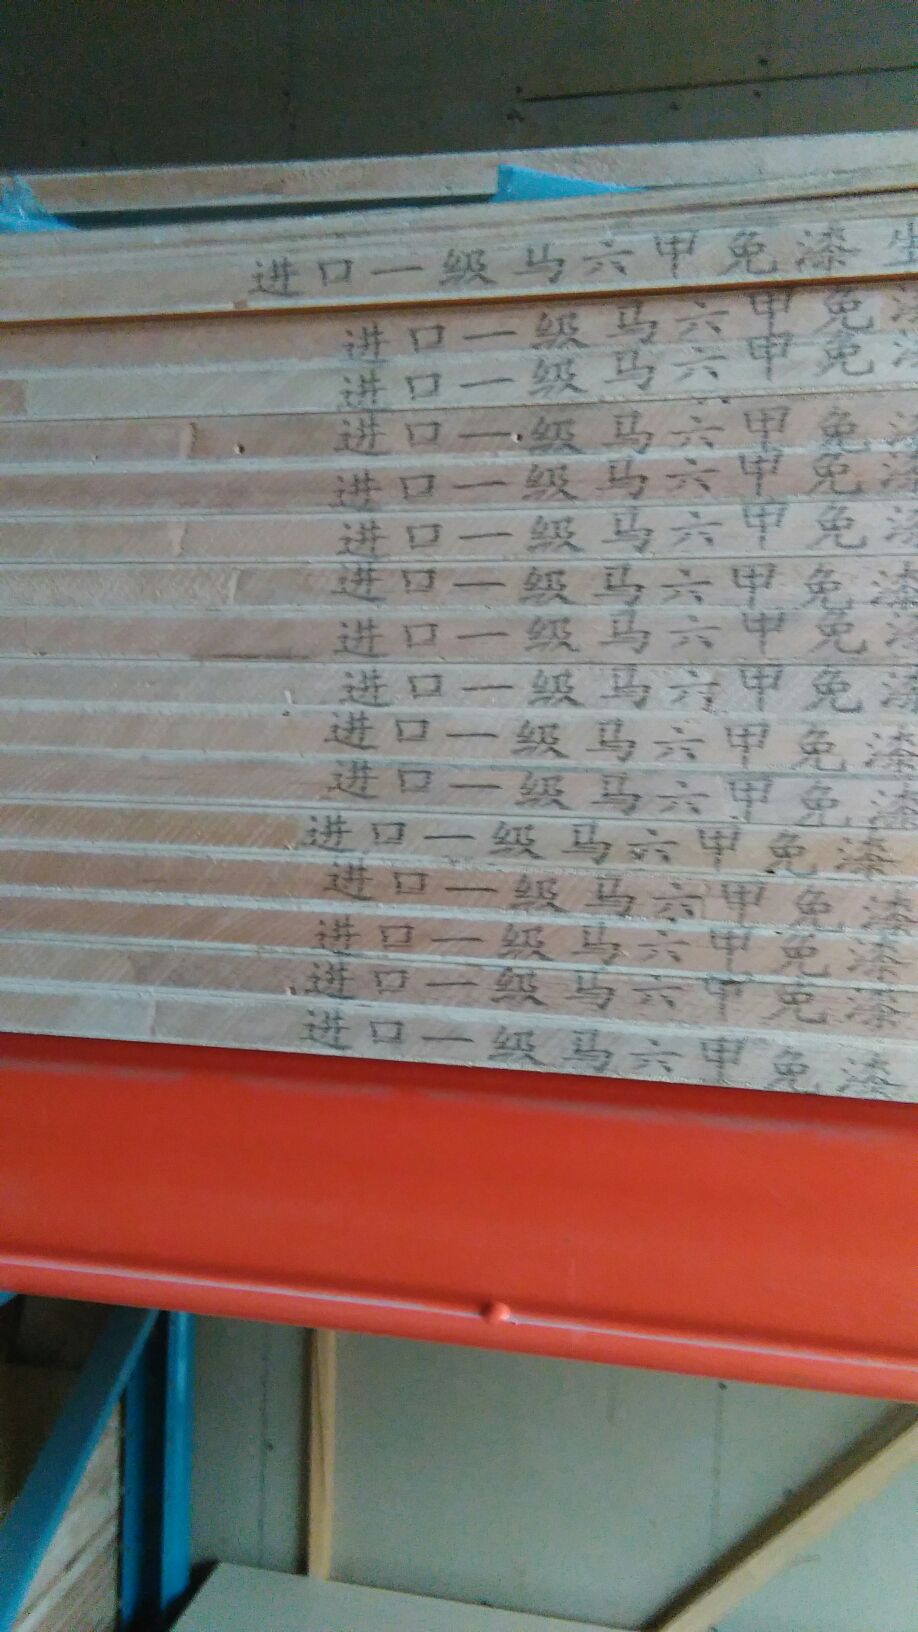 进口一级马六甲免漆
进口一级马六甲免
进口一级马六甲免
进口一级马六甲免
进口一级马六甲免
进口一级马六甲免
进口一级马六甲免漆
进口一级马六甲免
进口一级马六甲免
进口一级马六甲免漆
进口一级马六甲免漆
进口一级马六甲免漆
进口一级马六甲免漆
进口一级马六甲免漆
进口一级马六甲免漆
进口一级马六甲免漆